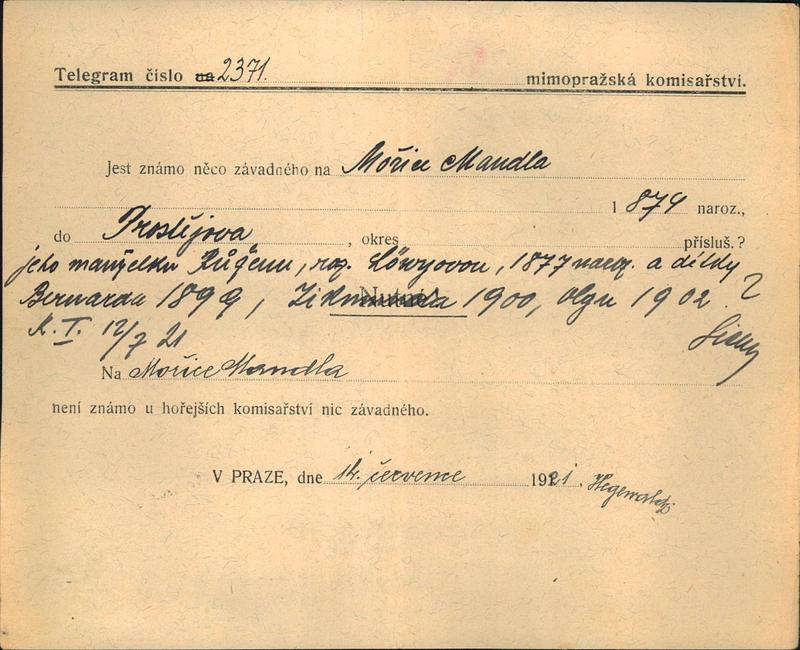 Telegram číslo na 2371. mimopražská komisařství.
Jest známo něco závadného na Mořice Mandla
1874 naroz.,
do Prostějova, okres přísluš.?
jeho manželku Růženu, roz. Löwyovou, 1877 naroz. a dítky
Bernarda 1899, Zikmunda 1900, Olgu 1902 ?
Nutné!
K. I. 12/7 21
Na Mořice Mandla
není známo u hořejších komisařství nic závadného.
V PRAZE, dne 14. července 1921.